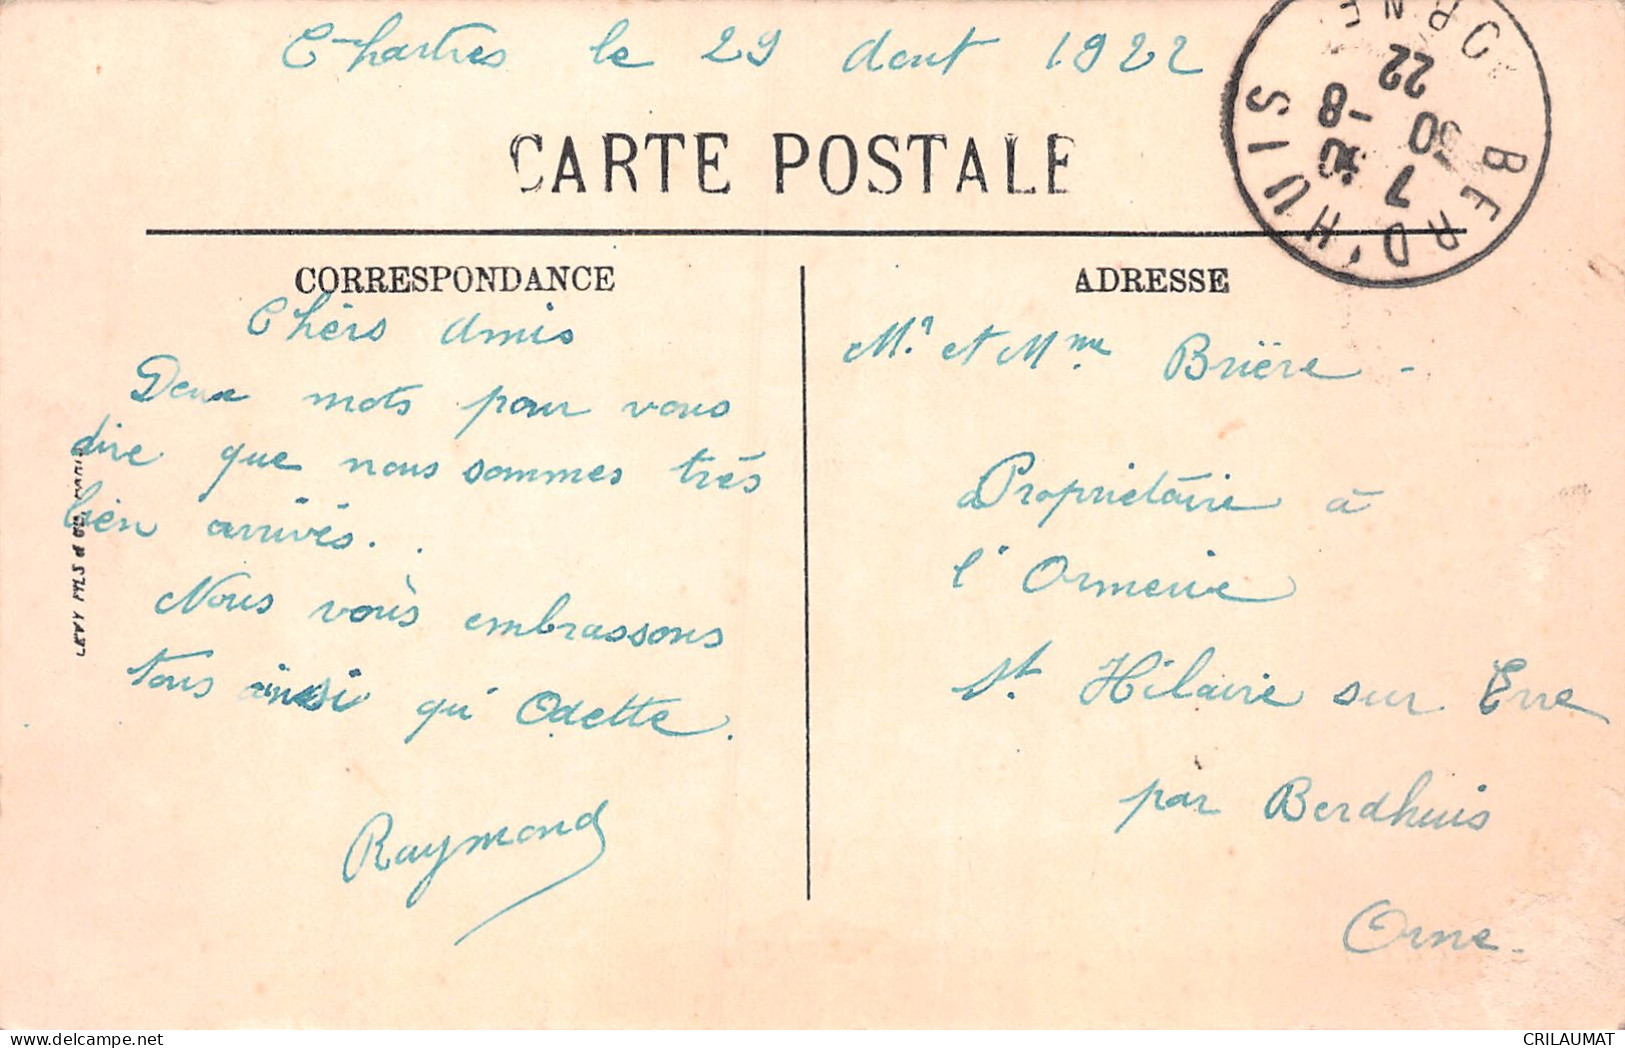 Chartres le 29 Aout 1922
CARTE POSTALE
BERD'HUIS
ORNE
7 30
30 -8
22
CORRESPONDANCE
Chèrs Amis
Deux mots pour vous
dire que nous sommes très
bien arrivés..
Nous vous embrassons
tous ainsi qu' Odette.
Raymond
LEVY FILS & Cie, PARIS
ADRESSE
Mr. et Mme Brière -
Propriètaire à
l'Ormerie
St. Hilaire sur Erre
par Berdhuis
Orne.
CRILAUMAT